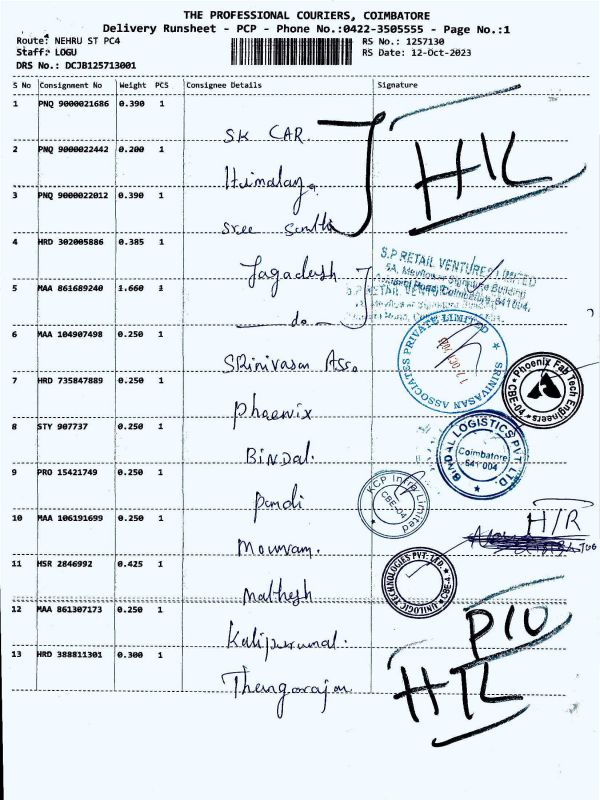 THE PROFESSIONAL COURIERS, COIMBATORE
Delivery Runsheet - PCP - Phone No.:0422-3505555 - Page No.:1
Route: NEHRU ST PC4
RS No.: 1257130
Staff: LOGU
RS Date: 12-Oct-2023
DRS No.: DCJB125713001
S No Consignment No Weight PCS Consignee Details Signature
1 PNQ 9000021686 0.390 1
SK CAR
2 PNQ 9000022442 0.200 1
Himalaya
3 PNQ 9000022012 0.390 1
Sree
4 HRD 302005886 0.385 1
Jagadesh
S.P RETAIL VENTURES LIMITED
5 MAA 861689240 1.660 1
do
6 MAA 104907498 0.250 1
Srinivasan Asso.
SRINIVASAN ASSOCIATES PRIVATE LIMITED
7 HRD 735847889 0.250 1
Phoenix
Phoenix Fab Tech Engineers
CBE-04
8 STY 907737 0.250 1
BINDAL
BINDAL LOGISTICS PVT. LTD.
Coimbatore
641 004
9 PRO 15421749 0.250 1
Pandi
KCP Infra Limited
CBE-04
10 MAA 106191699 0.250 1
H/R
Mounam.
11 HSR 2846992 0.425 1
Mathesh
UNILOGIC TECHNOLOGIES PVT. LTD.
12 MAA 861307173 0.250 1
Kaliperumal.
13 HRD 388811301 0.300 1
Thangarajan